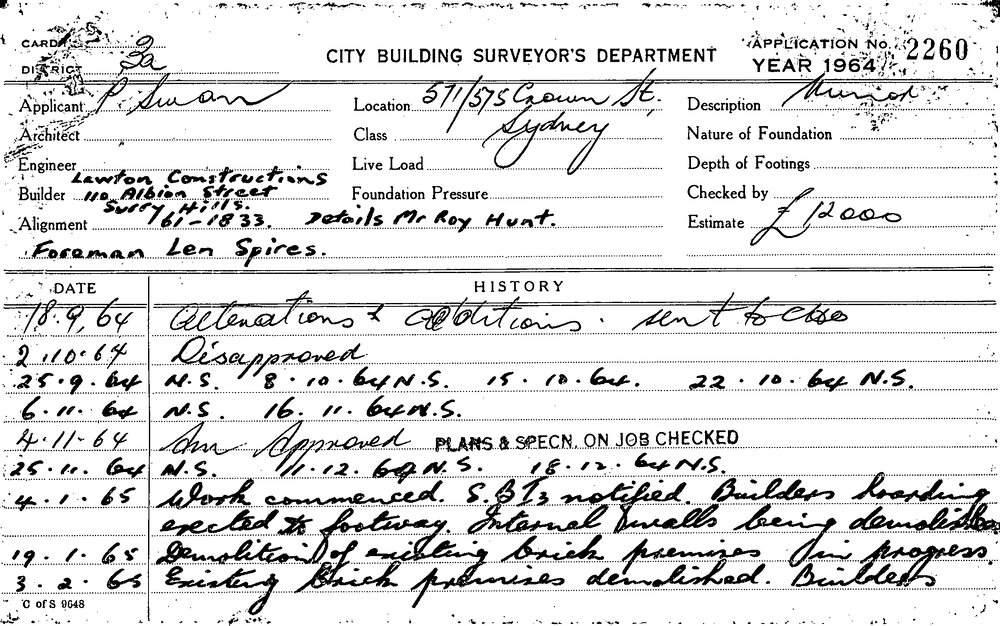 CARD
DISTRICT 2a
CITY BUILDING SURVEYOR'S DEPARTMENT
APPLICATION No. 2260
YEAR 1964
Applicant P. Swan
Location 571/575 Crown St,
Sydney
Description
Architect
Class
Nature of Foundation
Engineer
Live Load
Depth of Footings
Builder Lawton Constructions
110 Albion Street
Surry Hills.
Foundation Pressure
Checked by
Alignment 161-1833. Details Mr Roy Hunt.
Estimate £12000
Foreman Len Spires.
DATE HISTORY
18.9.64 Alterations & additions. sent to
2.10.64 Disapproved
25.9.64 N.S. 8.10.64 N.S. 15.10.64. 22.10.64 N.S.
6.11.64 N.S. 16.11.64 N.S.
4.11-64 Approved PLANS & SPECN. ON JOB CHECKED
25.11.64 N.S. 11.12.64 N.S. 18.12.64 N.S.
4.1.65 Work commenced. notified. Builders hoarding
erected to footway. Internal walls being demolished
19.1.65 Demolition of existing brick premises in progress
3.2.65 Existing brick premises demolished. Builders
C of S 9648